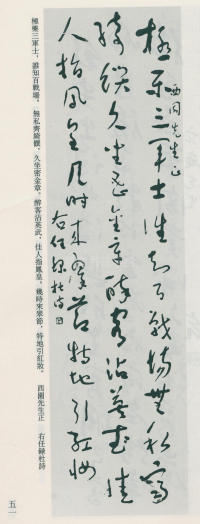 西園先生正
極樂三軍士誰知百戰場無私齊
綺饌久坐密金章醉客沾英武佳
人指鳳皇幾時來翠節特地引紅妝
右任錄杜詩
極樂三軍士，誰知百戰場。無私齊綺饌，久坐密金章。醉客沾英武，佳人指鳳皇。幾時來翠節，特地引紅妝。　西園先生正　右任錄杜詩
五一